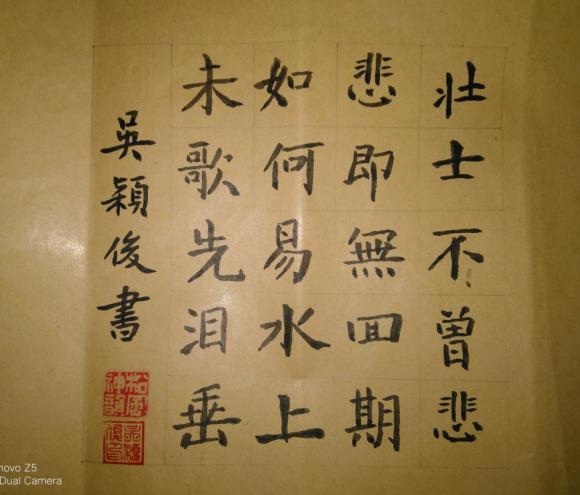 壮士不曾悲
悲即無囬期
如何易水上
未歌先泪垂
吳穎俊書
novo Z5
Dual Camera